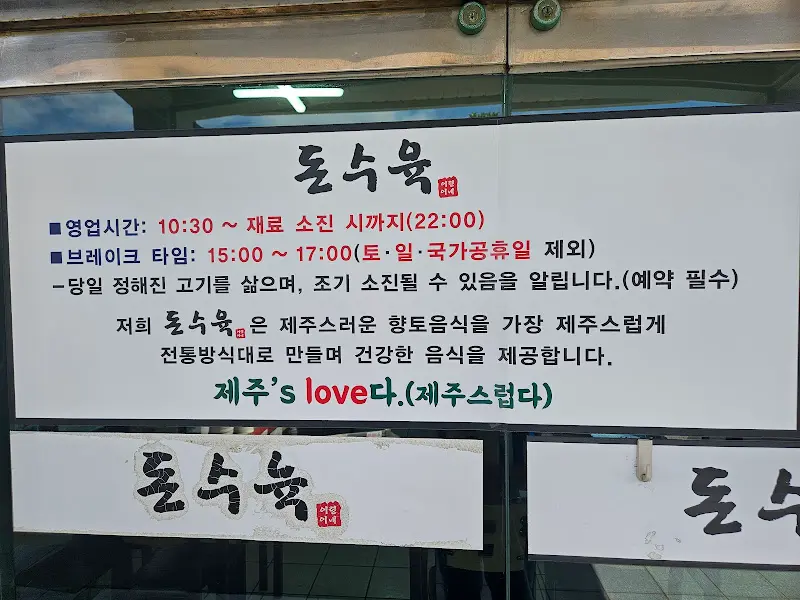 돈수육
어린
이네
■영업시간: 10:30 ~ 재료 소진 시까지(22:00)
■브레이크 타임: 15:00 ~ 17:00(토·일·국가공휴일 제외)
-당일 정해진 고기를 삶으며, 조기 소진될 수 있음을 알립니다.(예약 필수)
저희 돈수육은 제주스러운 향토음식을 가장 제주스럽게
전통방식대로 만들며 건강한 음식을 제공합니다.
제주's love다.(제주스럽다)
돈수육
어린
이네
돈수